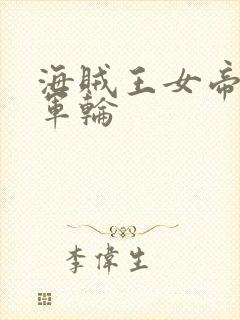 海賊王女帝
軍輪
李偉生